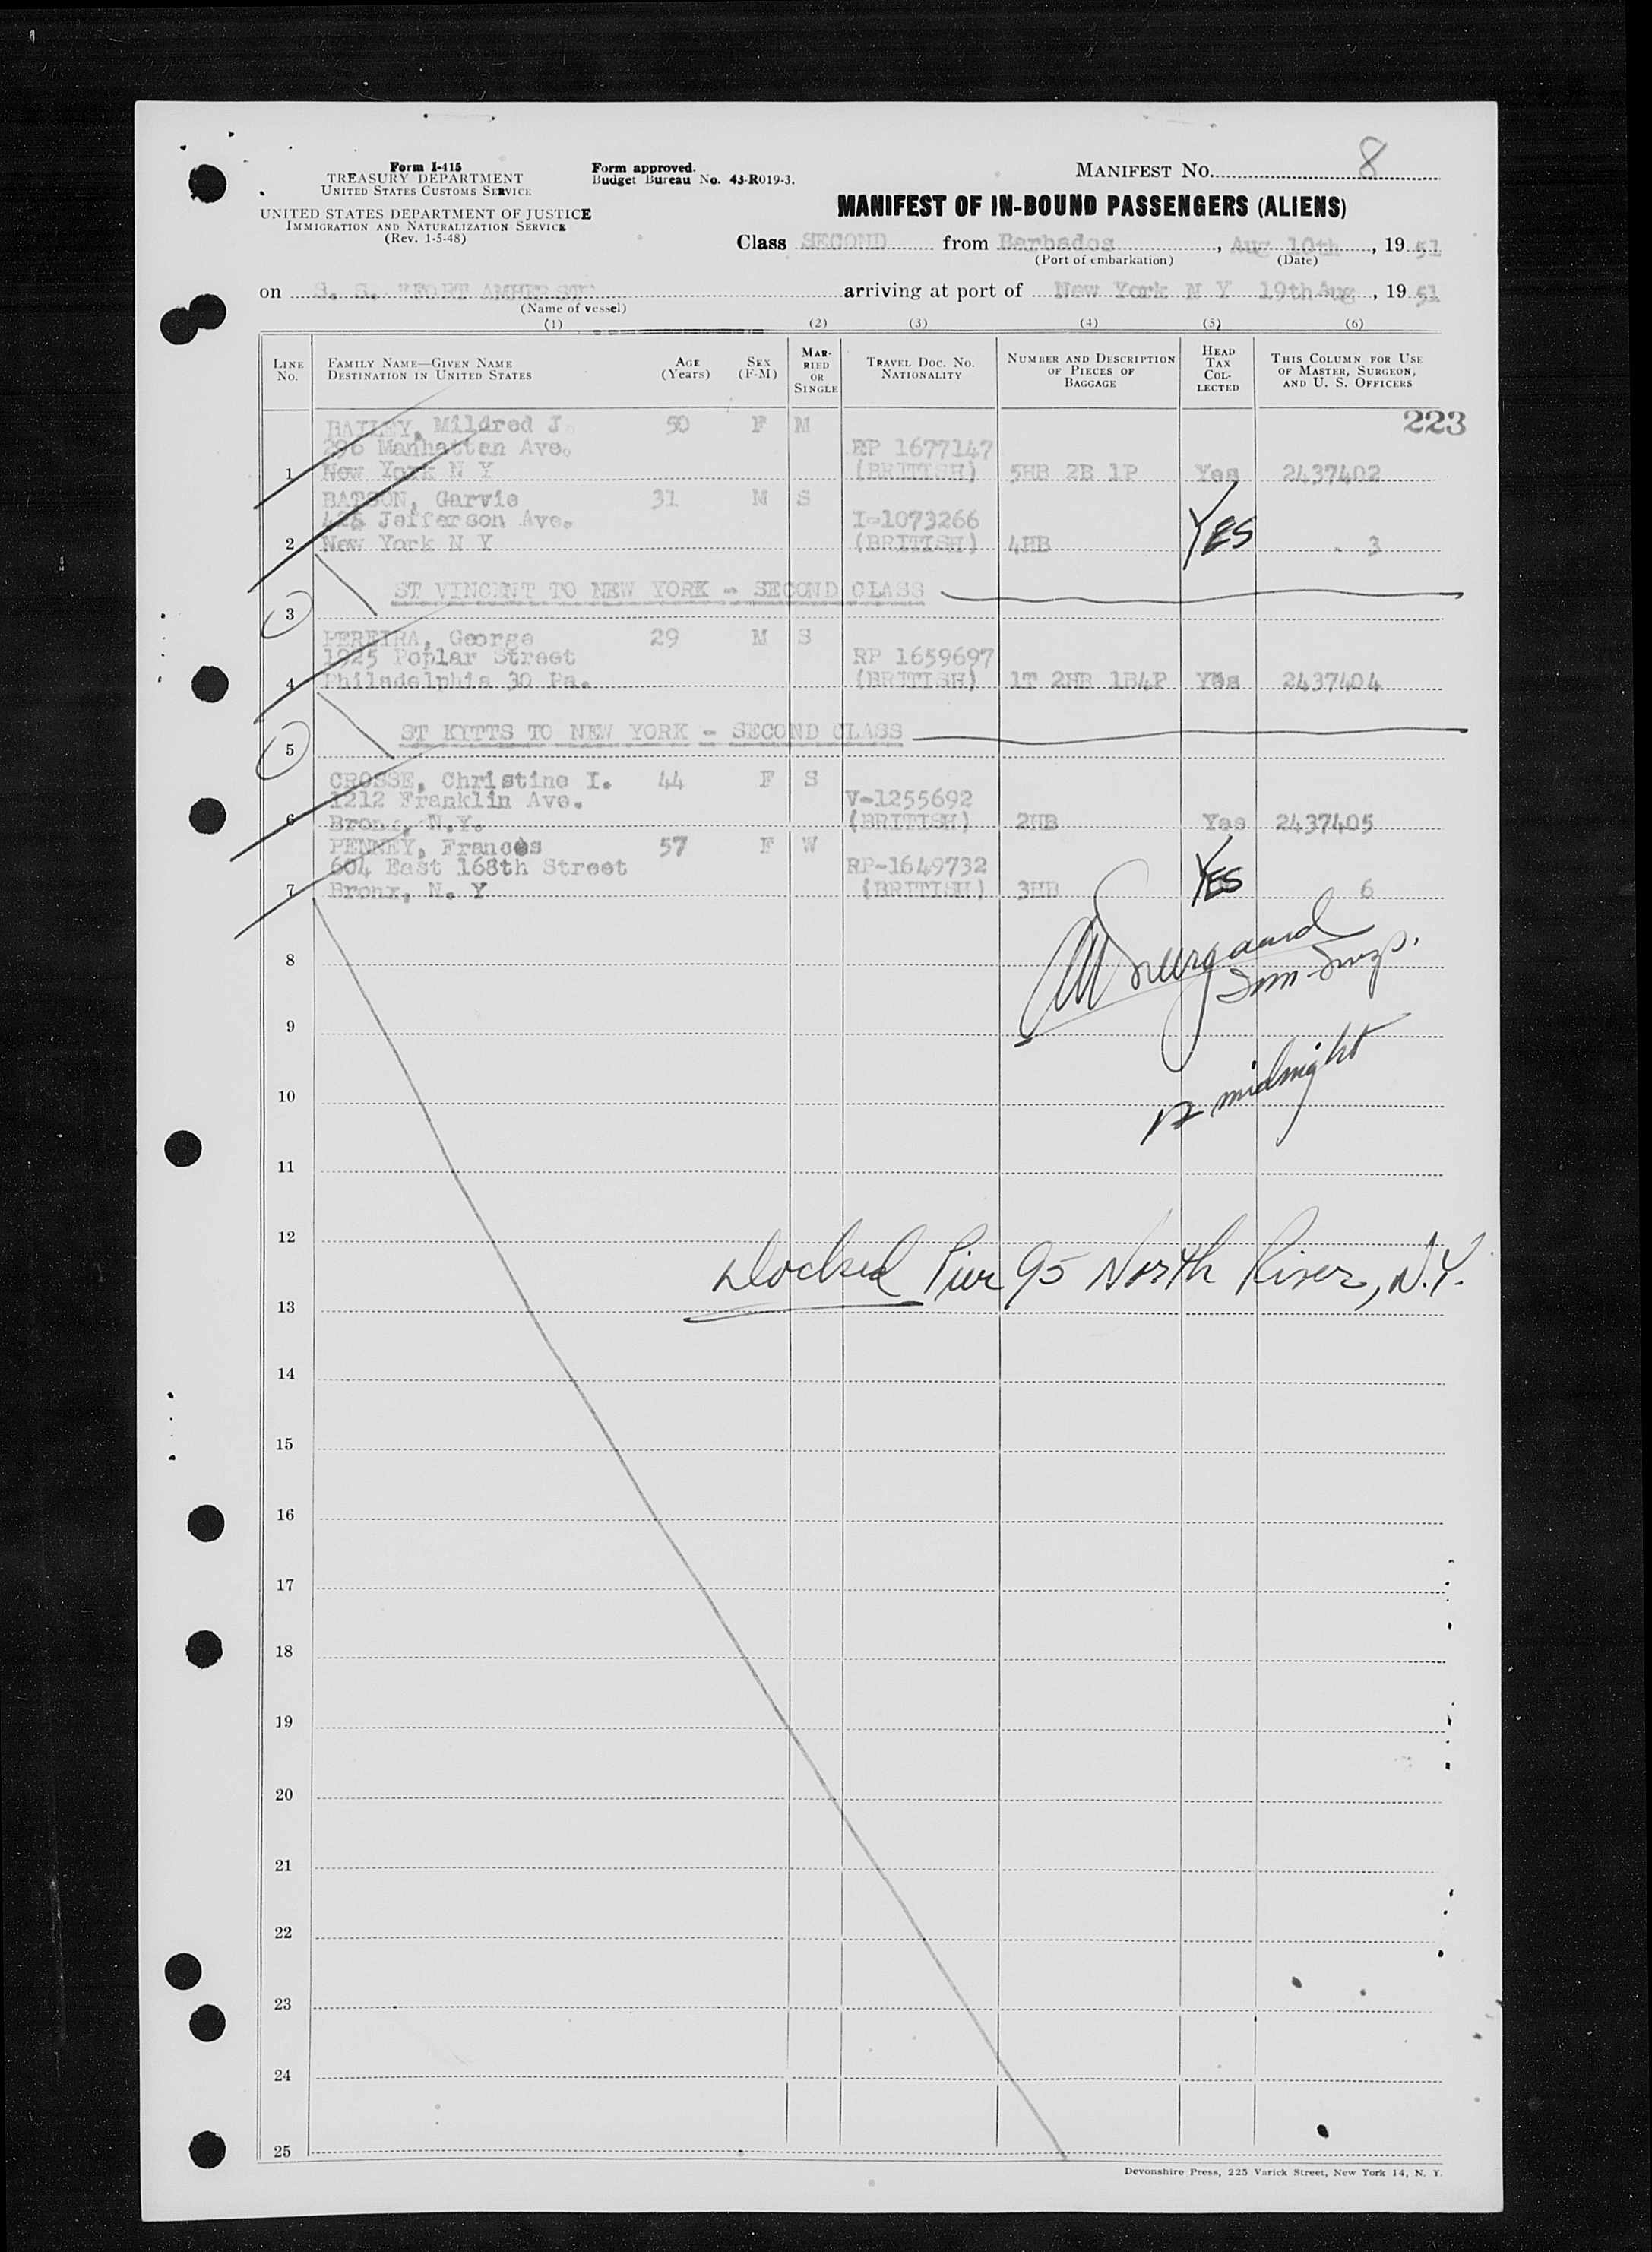 Form I-415
TREASURY DEPARTMENT
UNITED STATES CUSTOMS SERVICE
UNITED STATES DEPARTMENT OF JUSTICE
IMMIGRATION AND NATURALIZATION SERVICE
(Rev. 1-5-48)
Form approved.
Budget Bureau No. 43-R019-3.
MANIFEST No. 8
MANIFEST OF IN-BOUND PASSENGERS (ALIENS)
Class SECOND from Barbados, Aug 10th, 19 51
(Port of embarkation) (Date)
on S. S. "FORT AMHERST" arriving at port of New York N Y 19th Aug, 19 51
(Name of vessel)
(1) (2) (3) (4) (5) (6)
LINE No. FAMILY NAME—GIVEN NAME DESTINATION IN UNITED STATES AGE (Years) SEX (F-M) MARRIED OR SINGLE TRAVEL DOC. NO. NATIONALITY NUMBER AND DESCRIPTION OF PIECES OF BAGGAGE HEAD TAX COLLECTED THIS COLUMN FOR USE OF MASTER, SURGEON, AND U. S. OFFICERS
223
BAILEY, Mildred J. 50 F M
296 Manhattan Ave. RP 1677147
1 New York N Y (BRITISH) 5HB 2B 1P Yes 2437402
BATSON, Garvie 31 M S
425 Jefferson Ave. I-1073266
2 New York N Y (BRITISH) 4HB YES 3
ST VINCENT TO NEW YORK - SECOND CLASS
3
PEREIRA, George 29 M S
1925 Poplar Street RP 1659697
4 Philadelphia 30 Pa. (BRITISH) 1T 2HB 1B4P Yes 2437404
ST KITTS TO NEW YORK - SECOND CLASS
5
CROSSE, Christine I. 44 F S
1212 Franklin Ave. V-1255692
6 Bronx, N.Y. (BRITISH) 2HB Yes 2437405
PENNEY, Frances 57 F W
604 East 168th Street RP-1649732
7 Bronx, N. Y (BRITISH) 3HB YES 6
8
Imm Insp.
9
10
12 midnight
11
12
Docked Pier 95 North River, N.Y.
13
14
15
16
17
18
19
20
21
22
23
24
25
Devonshire Press, 225 Varick Street, New York 14, N. Y.